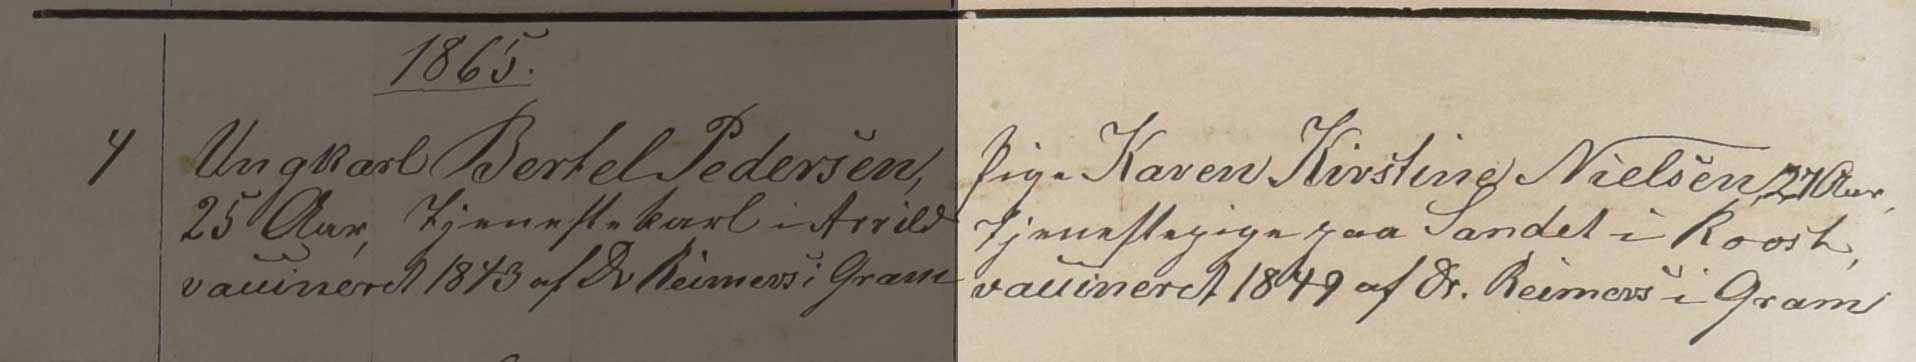 1865.
4 Ungkarl Bertel Pedersen,
25 Aar, Tjenestekarl i Arrild
vaccineret 1843 af Dr Reimers i Gram
Pige Karen Kirstine Nielsen, 27 Aar,
Tjenestepige paa Sandet i Roost,
vaccineret 1849 af Dr. Reimers i Gram